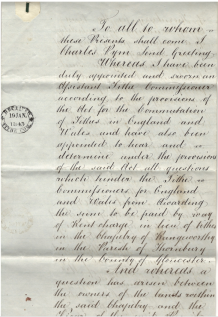 To all to whom
these Presents shall come I
Charles Pym Send Greeting
Whereas I have been
duly appointed and sworn an
Assistant Tithe Commissioner
according to the provisions of
the Act for the Commutation
of Tithes in England and
Wales and have also been
appointed to hear and
determine under the provisions
of the said Act all questions
which hinder the Tithe
Commissioners for England
and Wales from Awarding
the sum to be paid by way
of Rent charge in lieu of tithes
in the Chapelry of
in the Parish of Thornbury
in the County of Gloucester
And whereas a
question has arisen between
the owners of the lands within
the said Chapelry and the